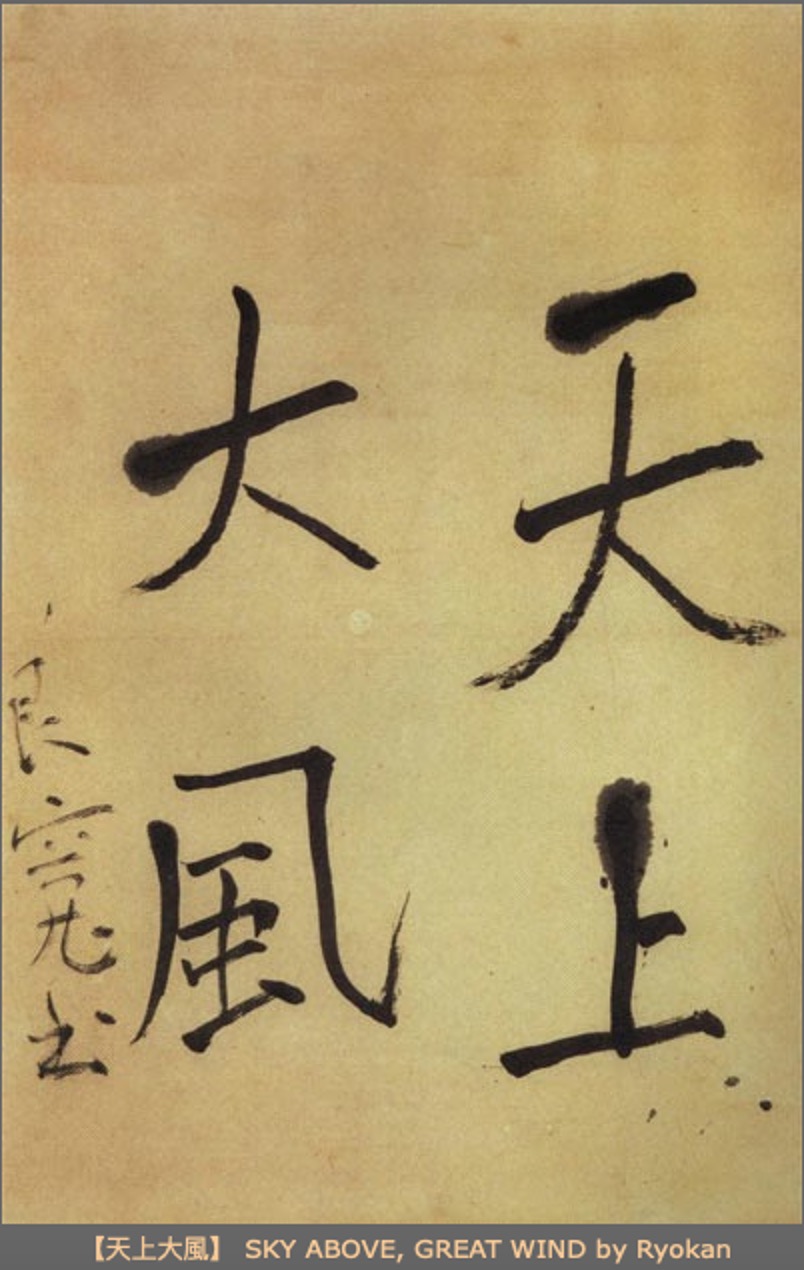 天上
大風
良寛書
【天上大風】 SKY ABOVE, GREAT WIND by Ryokan